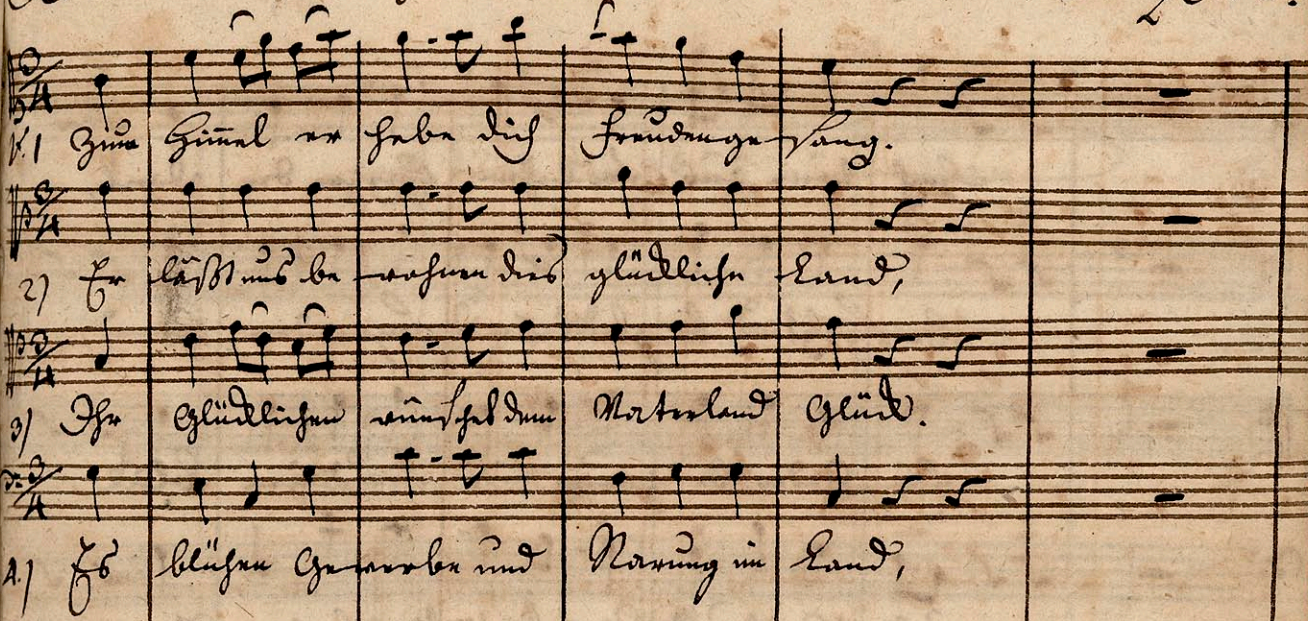 V. 1 Zum Himmel er hebe dich Freudenge sang.
2) Er läßt uns be wohnen dies glückliche Land,
3) Ihr Glücklichen wünschet dem Vaterland Glück.
4.) Es blühen Gewerbe und Narung im Land,